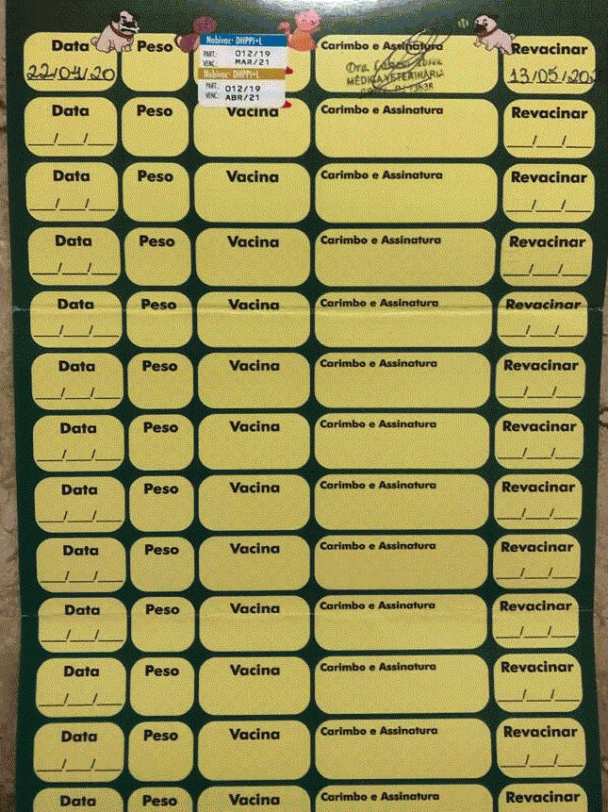 Data Peso Nobivac· DHPPi+L Carimbo e Assinatura Revacinar
PART. 012/19
VENC. MAR/21
Nobivac· DHPPi+L
22/04/20 PART. 012/19 Dra. MÉDICA VETERINÁRIA 13/05/202
VENC. ABR/21
Data Peso Vacina Carimbo e Assinatura Revacinar
__/__/__ __/__/__
Data Peso Vacina Carimbo e Assinatura Revacinar
__/__/__ __/__/__
Data Peso Vacina Carimbo e Assinatura Revacinar
__/__/__ __/__/__
Data Peso Vacina Carimbo e Assinatura Revacinar
__/__/__ __/__/__
Data Peso Vacina Carimbo e Assinatura Revacinar
__/__/__ __/__/__
Data Peso Vacina Carimbo e Assinatura Revacinar
__/__/__ __/__/__
Data Peso Vacina Carimbo e Assinatura Revacinar
__/__/__ __/__/__
Data Peso Vacina Carimbo e Assinatura Revacinar
__/__/__ __/__/__
Data Peso Vacina Carimbo e Assinatura Revacinar
__/__/__ __/__/__
Data Peso Vacina Carimbo e Assinatura Revacinar
__/__/__ __/__/__
Data Peso Vacina Carimbo e Assinatura Revacinar
__/__/__ __/__/__
Data Peso Vacina Carimbo e Assinatura Revacinar